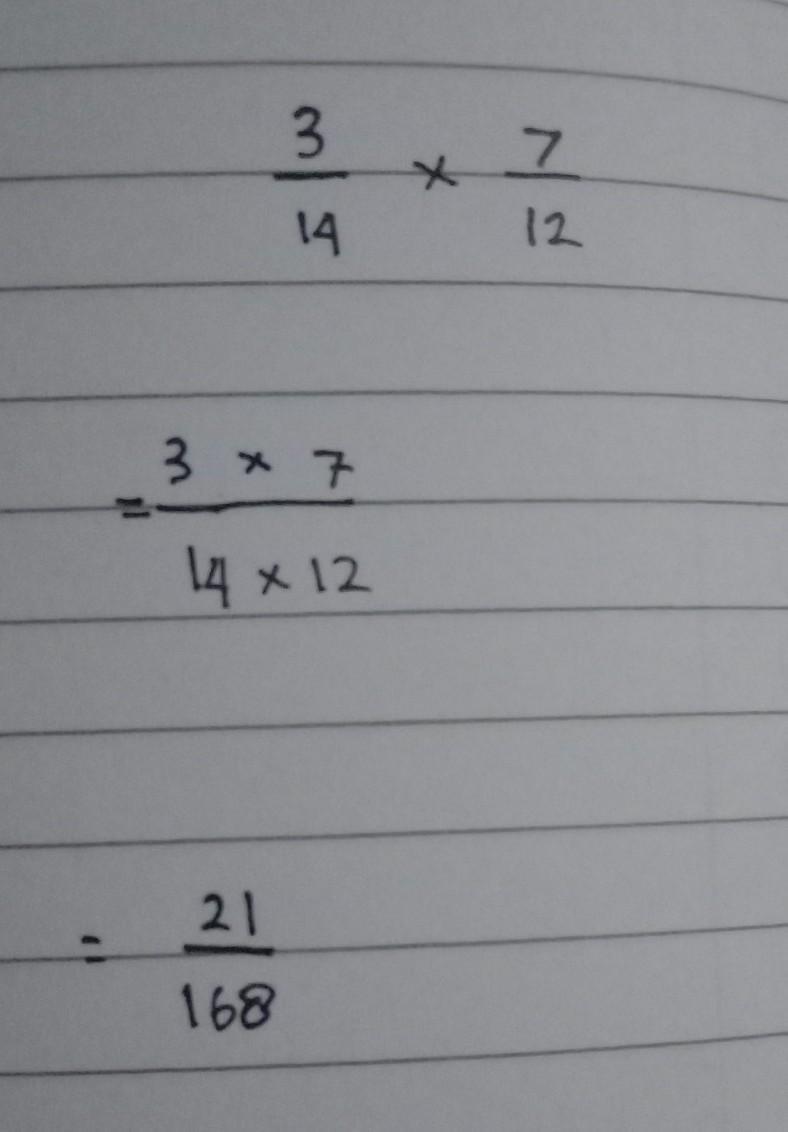 3/14 × 7/12
= 3 × 7 / 14 × 12
= 21/168